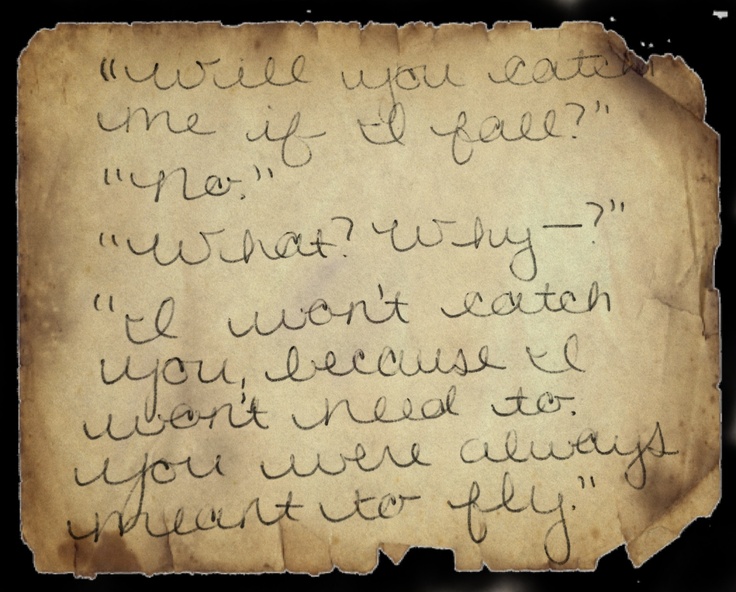 "Will you catch
me if I fall?"
"No."
"What? Why—?"
"I won't catch
you, because I
won't need to.
You were always
meant to fly."